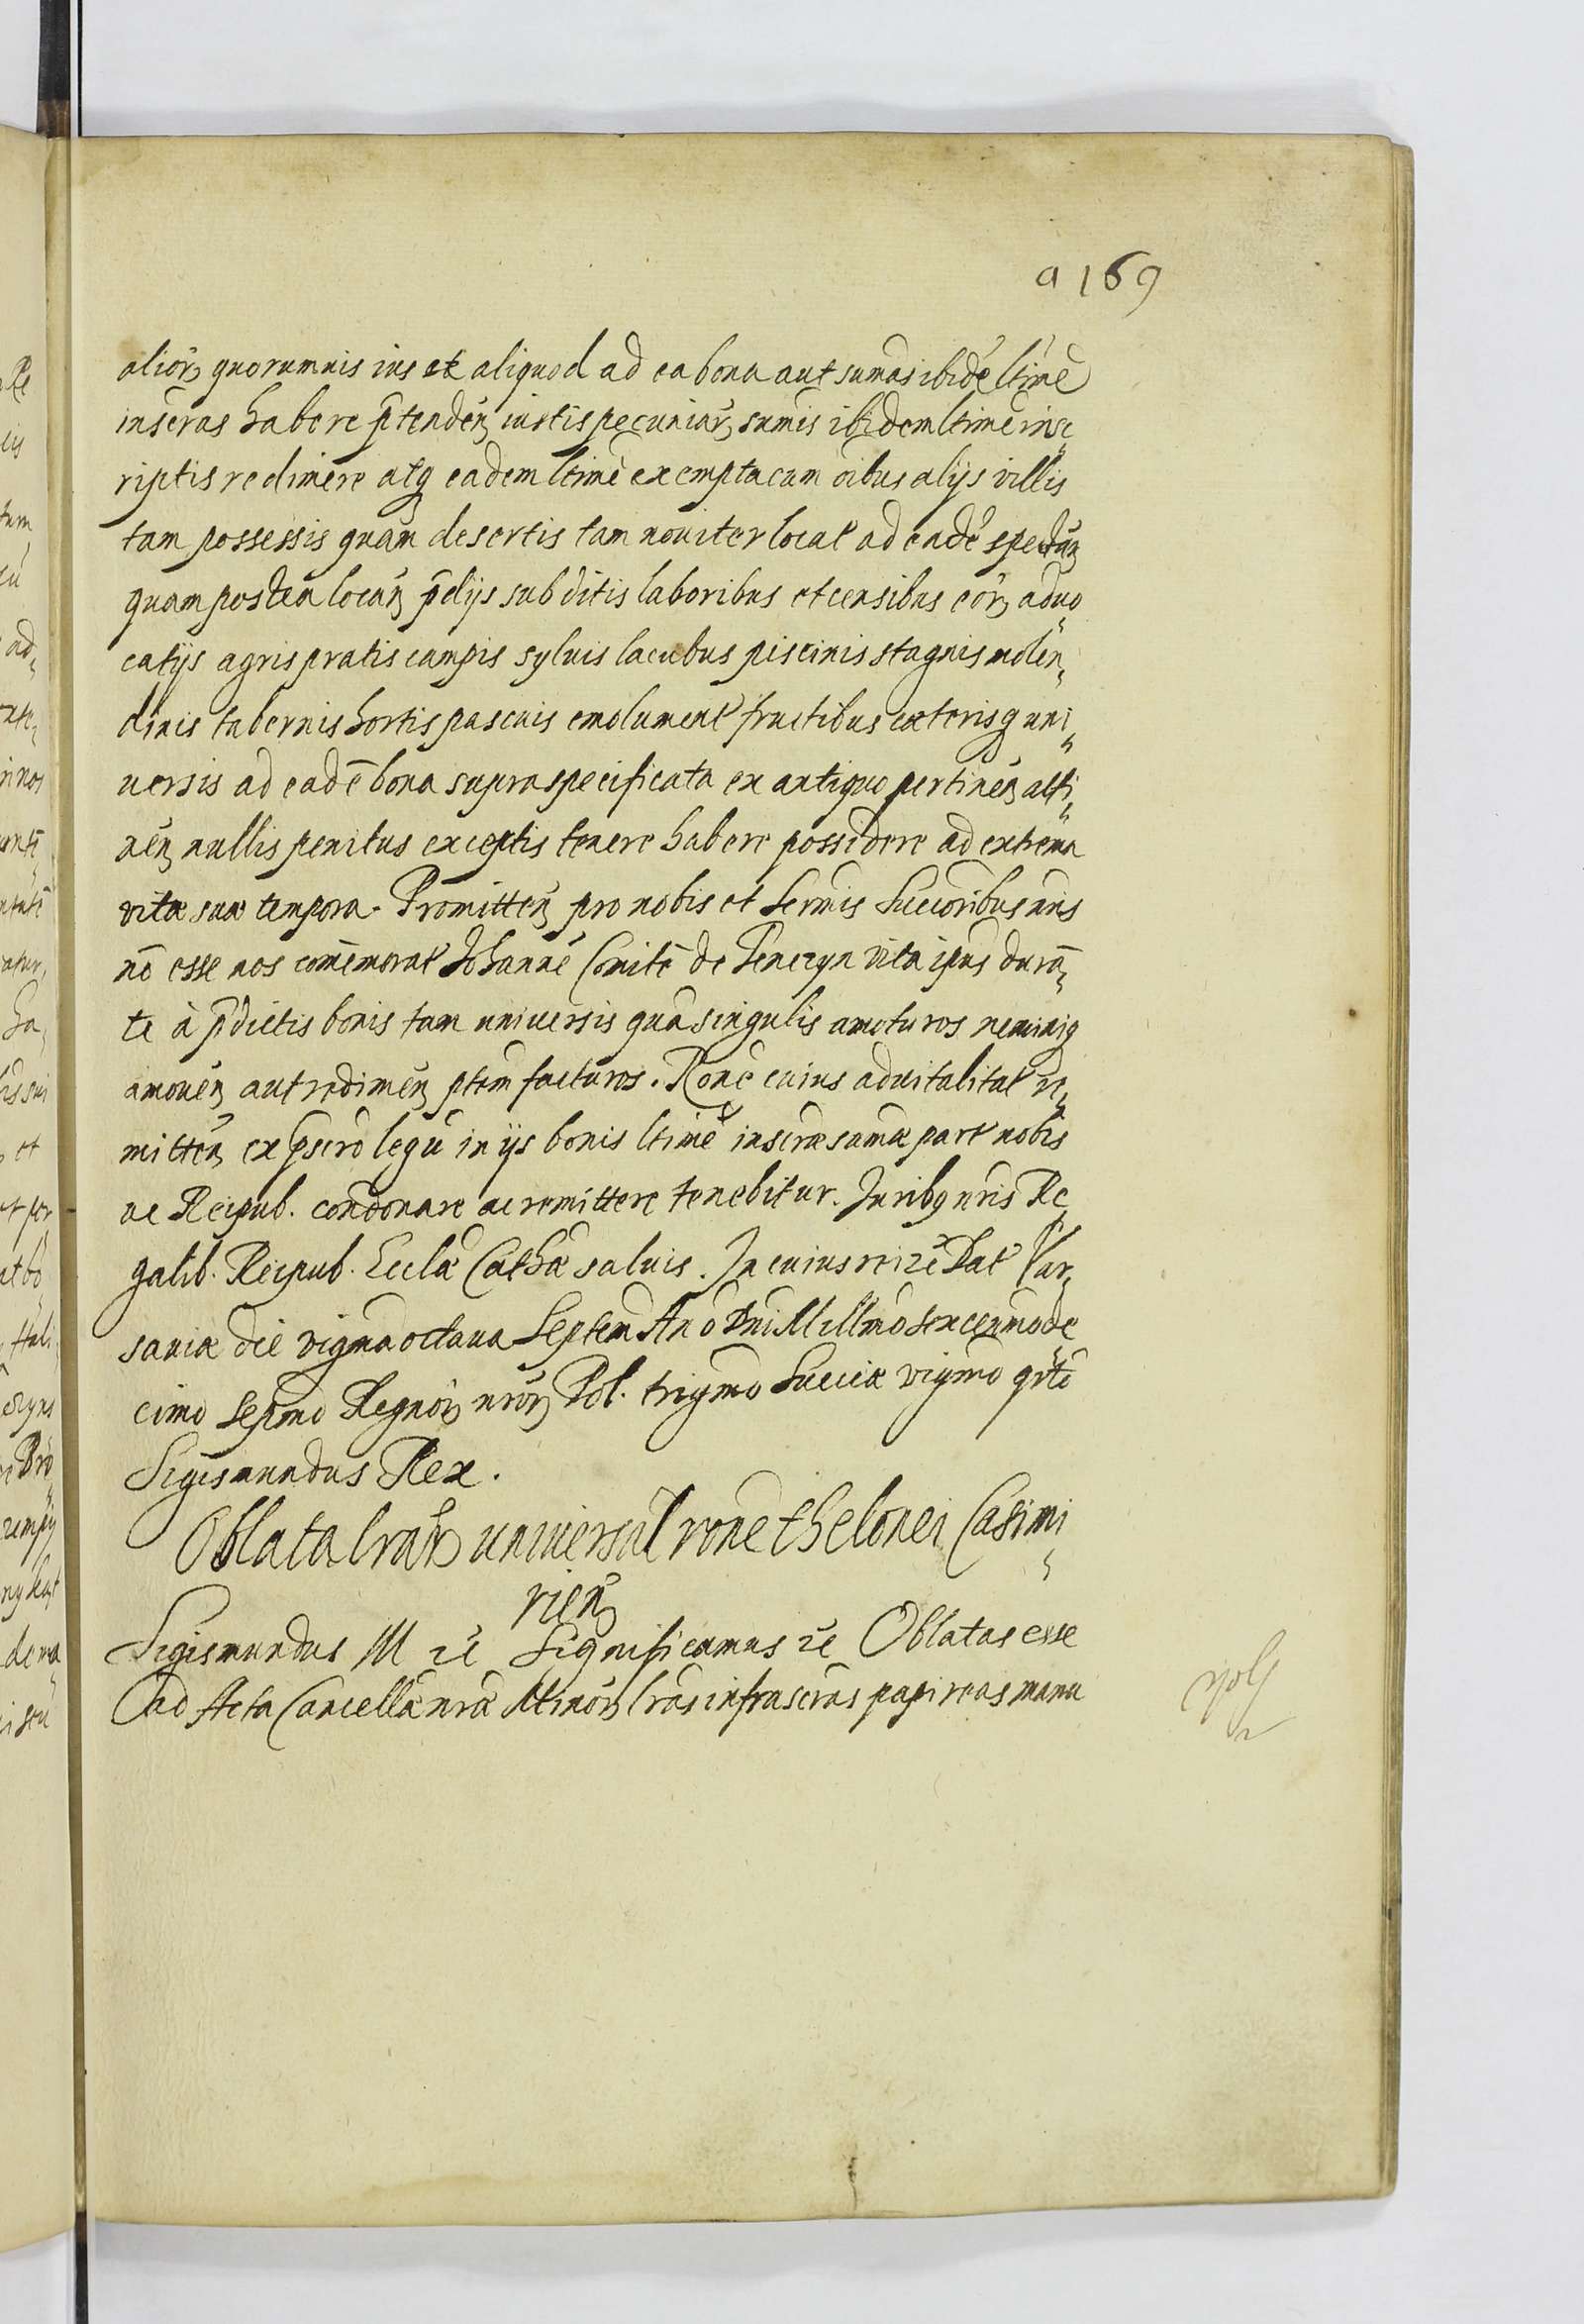 a 169
alior̃ quorumuis ius et aliquod ad ea bona aut sum̃as ibidẽ ltimè
inscras habere p̃tenden̄ iustis pecuniar̃ sum̃is ibidem ltimè insc
riptis redimere atq eadem ltimè exempta cum oĩbus alijs villis
tam possessis quam desertis tam nouiter locat ad eadẽ spectan̄
quam postea locan̄ p̃dijs subditis laboribus et censibus eor̃ aduo
catijs agris pratis campis syluis lacubus piscinis stagnis molen„
dinis tabernis hortis pascuis emolument fructibus cæterisq uni„
uersis ad eadẽ bona supraspecificata ex antiquo pertinen̄ atti„
nen̄ nullis penitus exceptis tenere habere possidere ad extrema
vitæ suæ tempora. Promitten̄ pro nobis et Sermis Succoribus nr̃is
nõ esse nos com̃emorat Johannẽ Comitẽ de Tenczyn vita ipius durã„
te à p̃dictis bonis tam uniuersis quã singulis amoturos neminiq
amouen̄ aut redimen̄ ptem facturos. Rone cuius aduitalitat re„
mitten̄ ex p̃scro legũ in ijs bonis ltimè inscræ sum̃æ part nobis
ac Reipub. condonare ac remittere tenebitur. Juribq nris Re„
galib. Reipub. Ecclæ Cathæ saluis. In cuius rei zẽ Dat Var„
sauiæ die vigma octaua Septem Ano Dni Millmo sexcenmo de„
cimo sepmo Regnor̃ nror̃ Pol. trigmo Sueciæ vigmo qrto
Sigismundus Rex.
Oblata lrar̃ uniuersal rone thelonei Casimi„
rien̄
Sigismundus III zẽ Significamus zẽ Oblatas esse
ad Acta Cancellæ nræ Minor̃ lras infrascras papireas manu